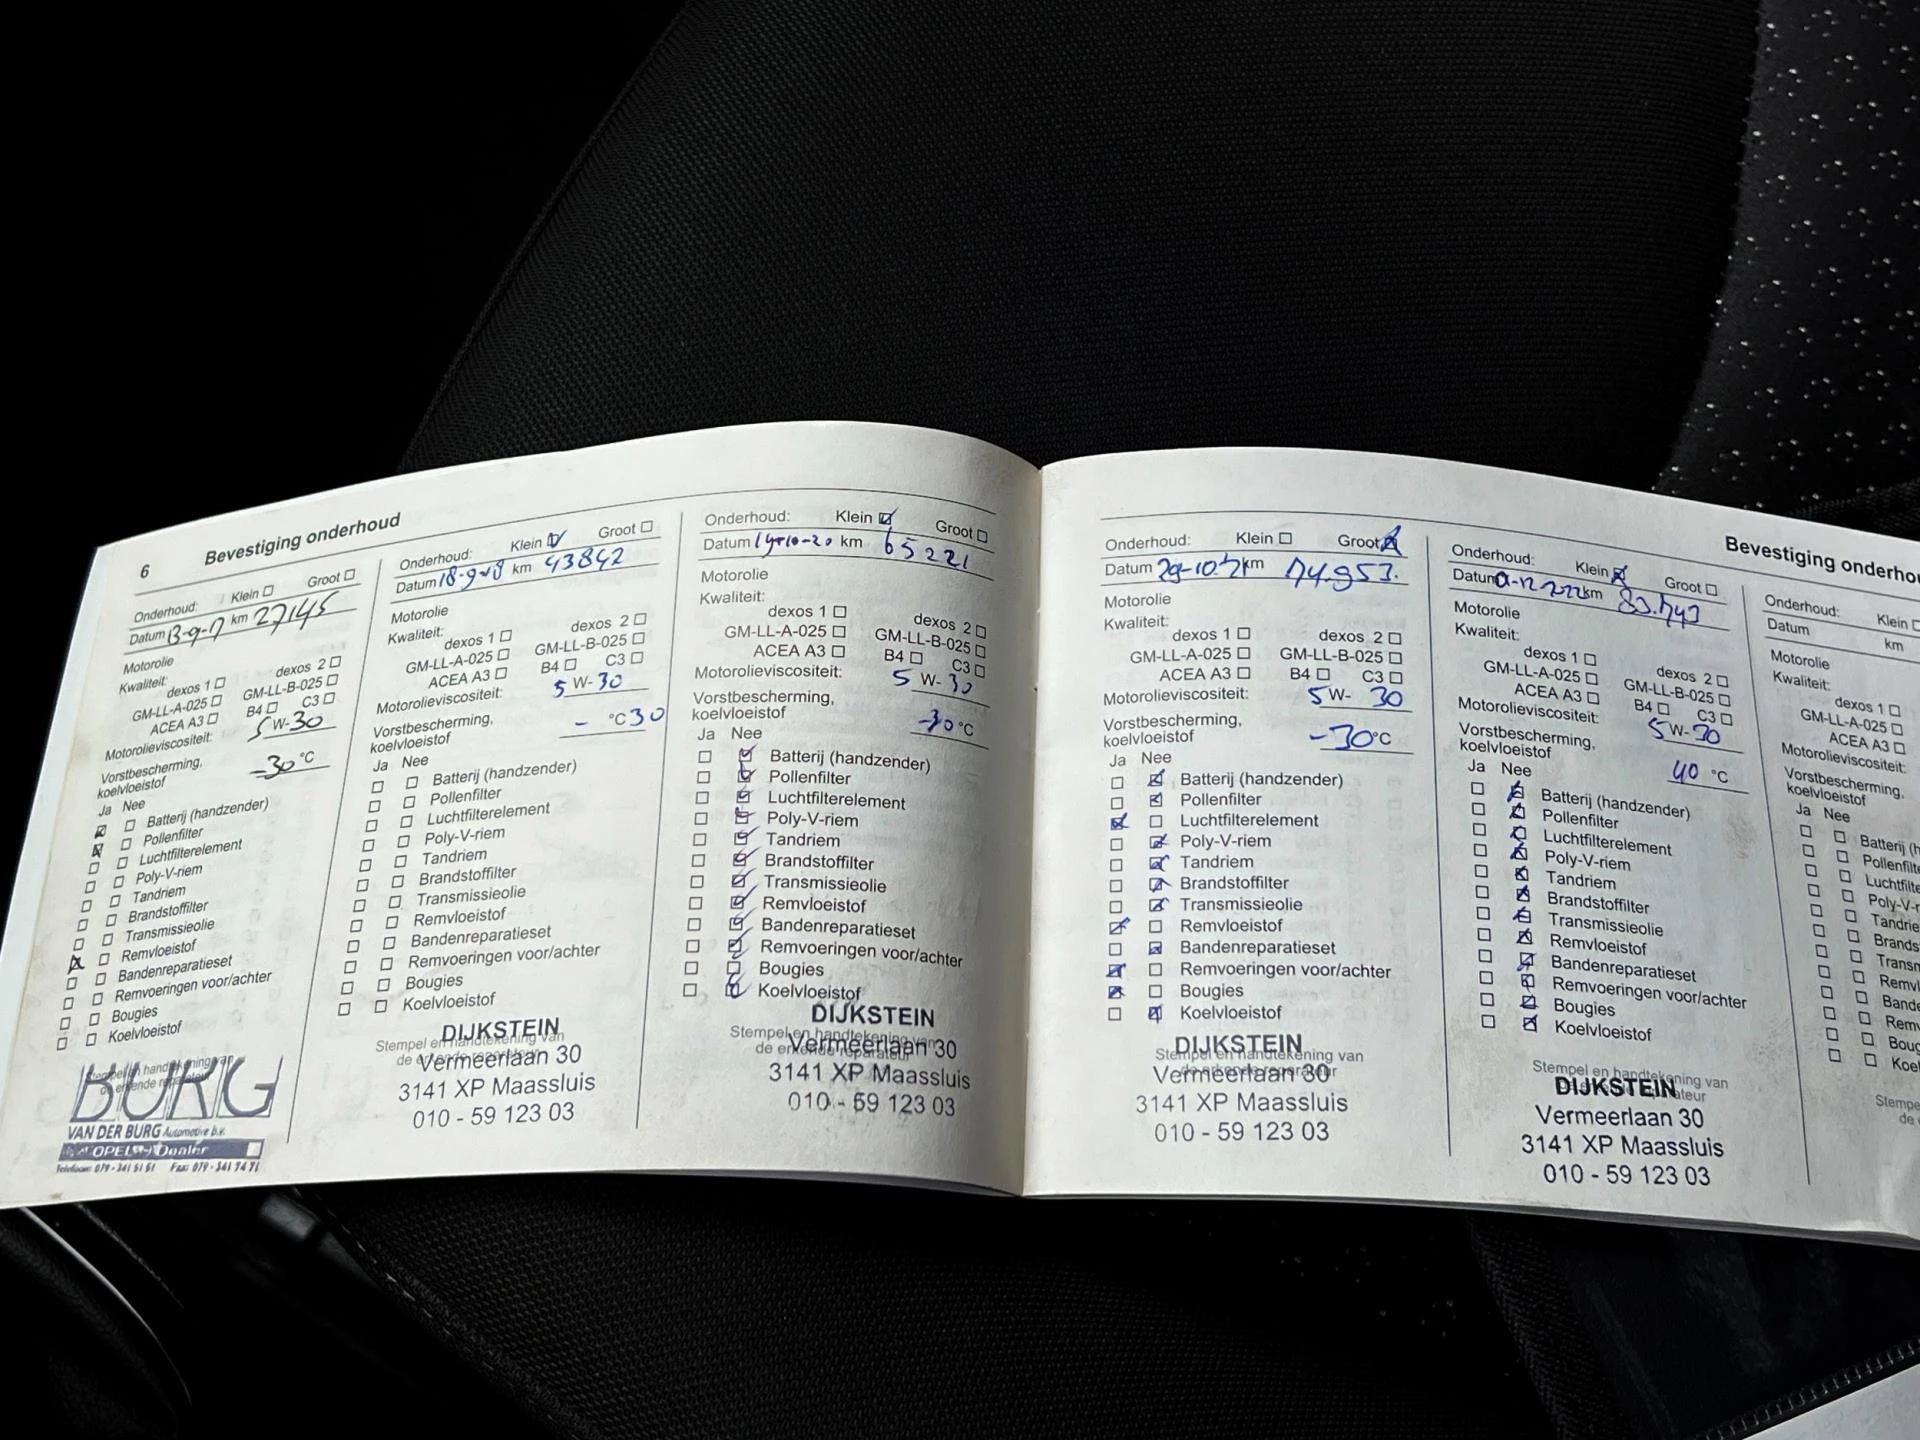 6
Bevestiging onderhoud
Onderhoud: Klein Groot
Datum 13-9-17 km 27145
Motorolie
Kwaliteit:
dexos 1 dexos 2
GM-LL-A-025 GM-LL-B-025
ACEA A3 B4 C3
Motorolieviscositeit: 5 W-30
Vorstbescherming,
koelvloeistof -30 °C
Ja Nee
Batterij (handzender)
Pollenfilter
Luchtfilterelement
Poly-V-riem
Tandriem
Brandstoffilter
Transmissieolie
Remvloeistof
Bandenreparatieset
Remvoeringen voor/achter
Bougies
Koelvloeistof
BURG
VAN DER BURG Automotive b.v.
OPEL Dealer
Telefoon: 079-341 51 51 Fax: 079-341 74 71
Onderhoud: Klein Groot
Datum 18-9-18 km 43842
Motorolie
Kwaliteit:
dexos 1 dexos 2
GM-LL-A-025 GM-LL-B-025
ACEA A3 B4 C3
Motorolieviscositeit: 5 W-30
Vorstbescherming,
koelvloeistof - °C 30
Ja Nee
Batterij (handzender)
Pollenfilter
Luchtfilterelement
Poly-V-riem
Tandriem
Brandstoffilter
Transmissieolie
Remvloeistof
Bandenreparatieset
Remvoeringen voor/achter
Bougies
Koelvloeistof
DIJKSTEIN
Stempel en handtekening van
de erkende reparateur
Vermeerlaan 30
3141 XP Maassluis
010 - 59 123 03
Onderhoud: Klein Groot
Datum km 65221
Motorolie
Kwaliteit:
dexos 1 dexos 2
GM-LL-A-025 GM-LL-B-025
ACEA A3 B4 C3
Motorolieviscositeit: 5 W-30
Vorstbescherming,
koelvloeistof -30 °C
Ja Nee
Batterij (handzender)
Pollenfilter
Luchtfilterelement
Poly-V-riem
Tandriem
Brandstoffilter
Transmissieolie
Remvloeistof
Bandenreparatieset
Remvoeringen voor/achter
Bougies
Koelvloeistof
DIJKSTEIN
Stempel en handtekening van
de erkende reparateur
Vermeerlaan 30
3141 XP Maassluis
010 - 59 123 03
Bevestiging
Onderhoud: Klein Groot
Datum 29-10-21 km 74.953.
Motorolie
Kwaliteit:
dexos 1 dexos 2
GM-LL-A-025 GM-LL-B-025
ACEA A3 B4 C3
Motorolieviscositeit: 5 W- 30
Vorstbescherming,
koelvloeistof -30 °C
Ja Nee
Batterij (handzender)
Pollenfilter
Luchtfilterelement
Poly-V-riem
Tandriem
Brandstoffilter
Transmissieolie
Remvloeistof
Bandenreparatieset
Remvoeringen voor/achter
Bougies
Koelvloeistof
DIJKSTEIN
Stempel en handtekening van
de erkende reparateur
Vermeerlaan 30
3141 XP Maassluis
010 - 59 123 03
Onderhoud: Klein Groot
Datum km 83.743
Motorolie
Kwaliteit:
dexos 1 dexos 2
GM-LL-A-025 GM-LL-B-025
ACEA A3 B4 C3
Motorolieviscositeit: 5 W-30
Vorstbescherming,
koelvloeistof 40 °C
Ja Nee
Batterij (handzender)
Pollenfilter
Luchtfilterelement
Poly-V-riem
Tandriem
Brandstoffilter
Transmissieolie
Remvloeistof
Bandenreparatieset
Remvoeringen voor/achter
Bougies
Koelvloeistof
Stempel en handtekening van
DIJKSTEIN
Vermeerlaan 30
3141 XP Maassluis
010 - 59 123 03
Onderhoud: Klein
Datum km
Motorolie
Kwaliteit:
dexos 1
GM-LL-A-025
ACEA A3
Motorolieviscositeit:
Vorstbescherming,
koelvloeistof
Ja Nee